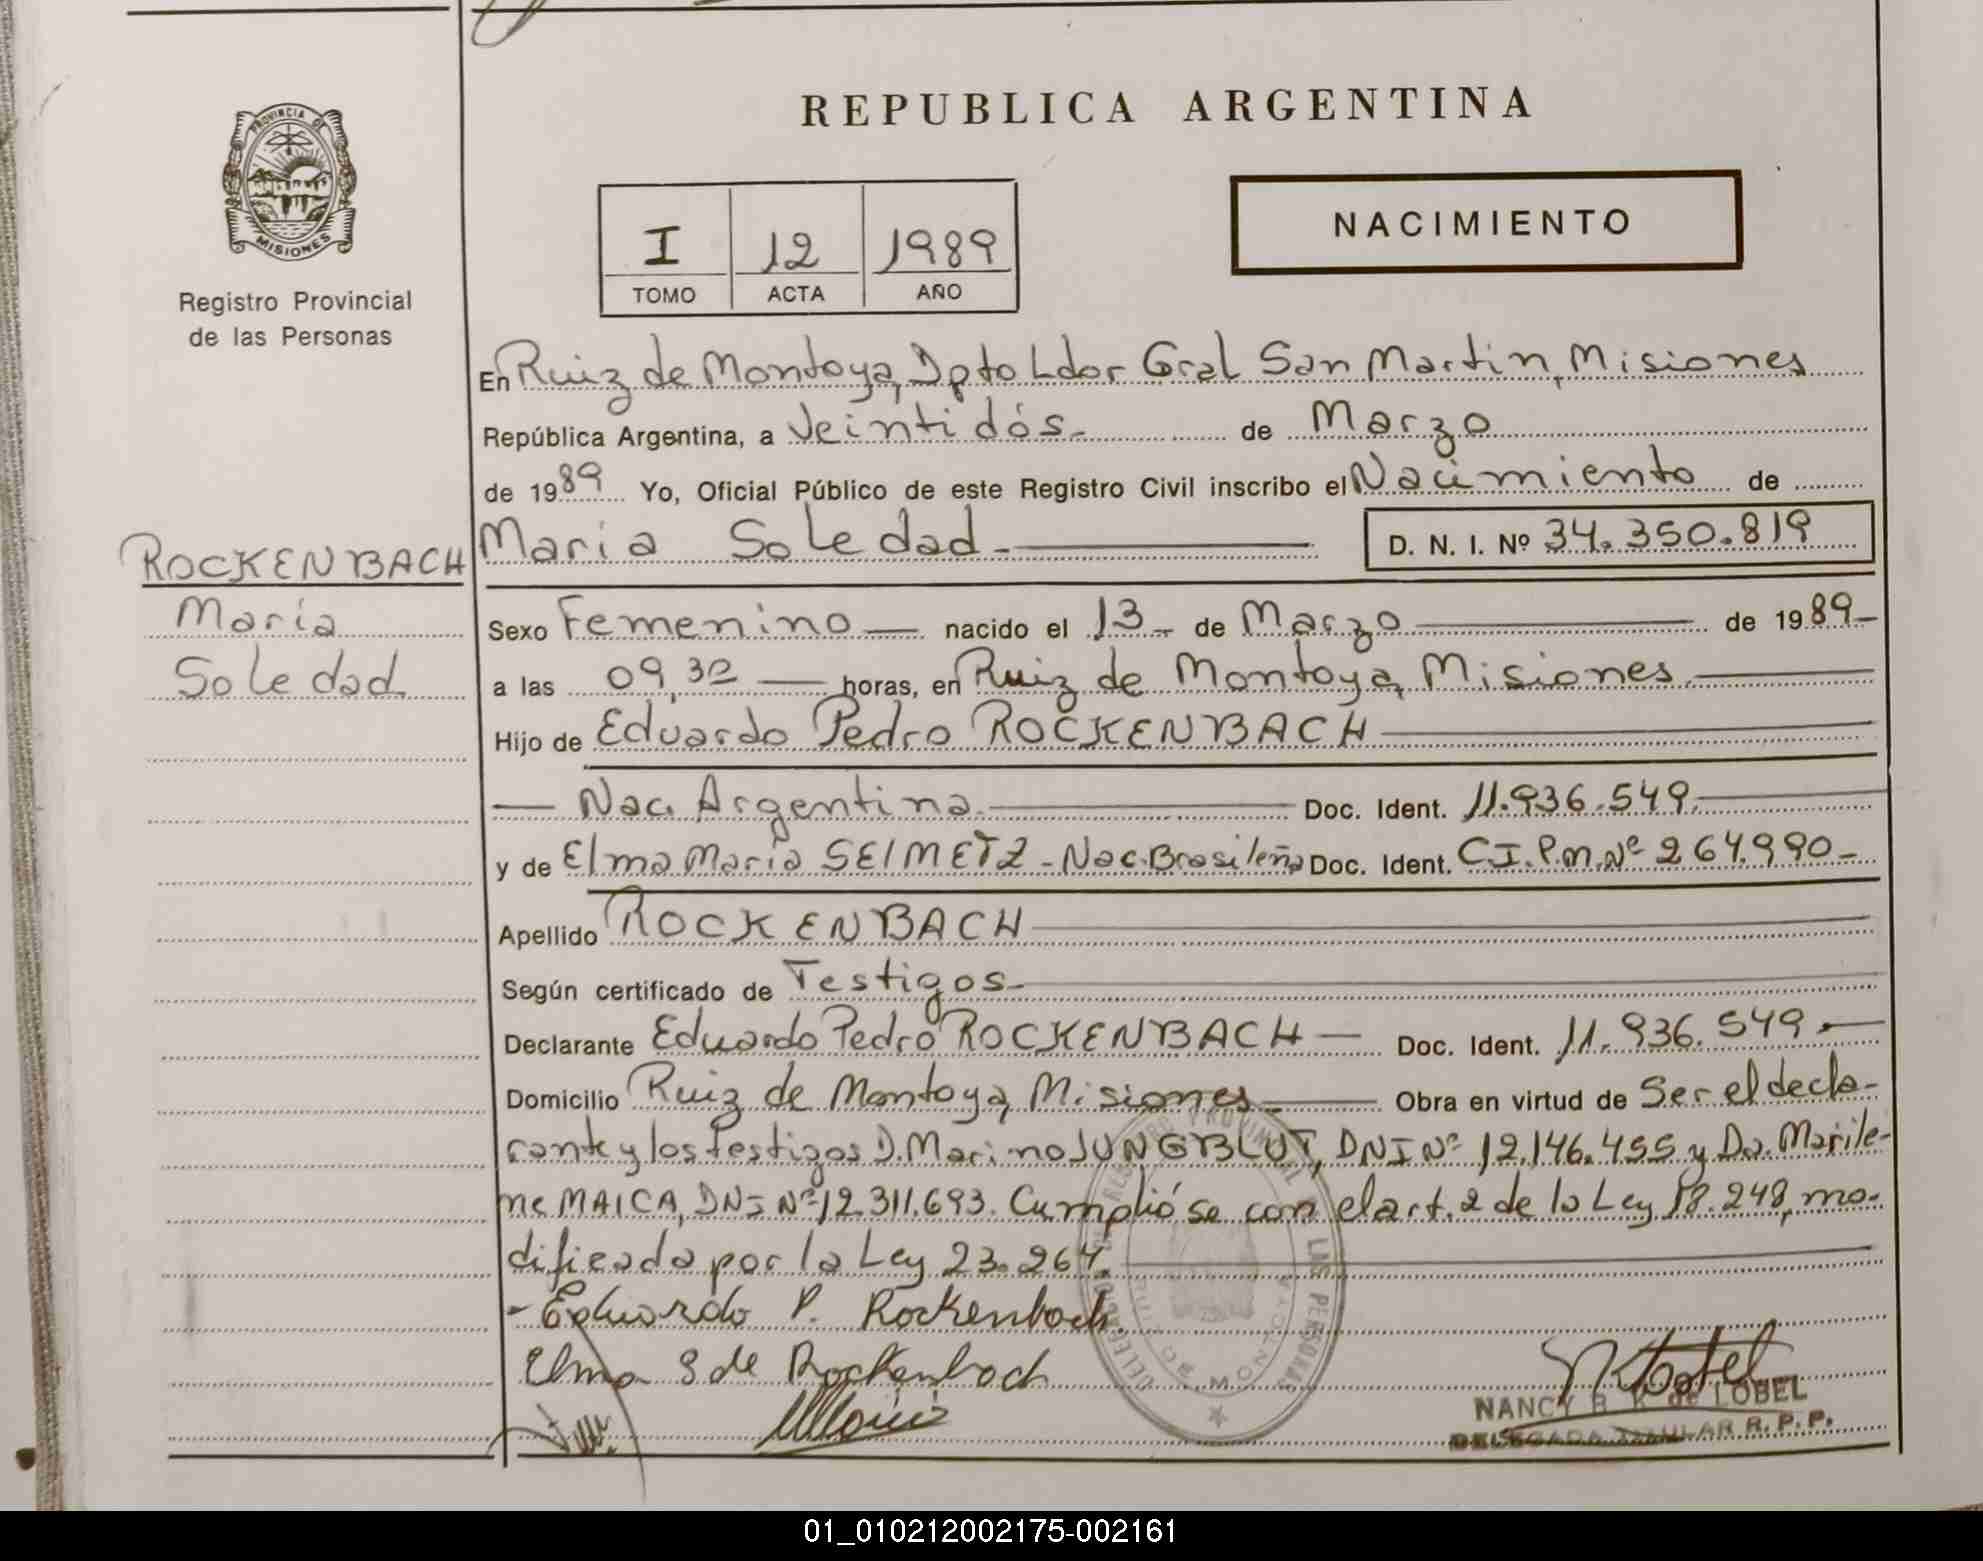 REPUBLICA ARGENTINA
PROVINCIA DE
MISIONES
Registro Provincial
de las Personas
I 12 1989
TOMO ACTA AÑO
NACIMIENTO
En Ruiz de Montoya, Dpto Ldor Gral San Martin, Misiones
República Argentina, a Veintidós - de Marzo
de 1989 Yo, Oficial Público de este Registro Civil inscribo el Nacimiento de
Maria Soledad - D. N. I. Nº 34.350.819
ROCKENBACH
María
Soledad
Sexo Femenino — nacido el 13 - de Marzo — de 1989 -
a las 09,30 — horas, en Ruiz de Montoya, Misiones. —
Hijo de Eduardo Pedro ROCKENBACH —
— Nac. Argentina. — Doc. Ident. 11.936.549. —
y de Elma María SEIMETZ - Nac. Brasileña Doc. Ident. C.I.P.M. Nº 264.990 -
Apellido ROCKENBACH —
Según certificado de Testigos -
Declarante Eduardo Pedro ROCKENBACH — Doc. Ident. 11.936.549. —
Domicilio Ruiz de Montoya, Misiones — Obra en virtud de Ser el decla-
rante y los testigos D. Marino JUNGBLUT, DNI Nº 12.146.455 y Da. Marile-
ne MAICA, DNI Nº 12.311.693. Cumplióse con el art. 2 de la Ley 18.248, mo-
dificada por la Ley 23.264. —
- Eduardo P. Rockenbach.
Elma S de Rockenbach
NANCY R. K de LOBEL
DELEGADA TITULAR R. P. P.
01_010212002175-002161